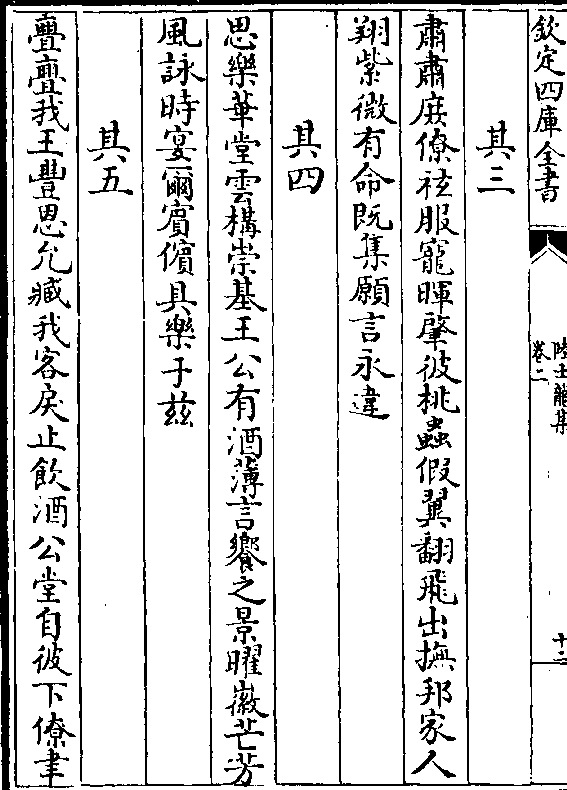 欽定四庫全書
陸士龍集
卷二
十二
其三
肅肅庶僚祛服寵暉肇彼桃蟲假翼翻飛出撫邦家人
翔紫微有命既集願言永違
其四
思樂華堂雲構崇基王公有酒薄言饗之景曜徽芒芳
風詠時宴爾賓儐具樂于兹
其五
亹亹我王豐恩允臧我客戾止飲酒公堂自彼下僚聿